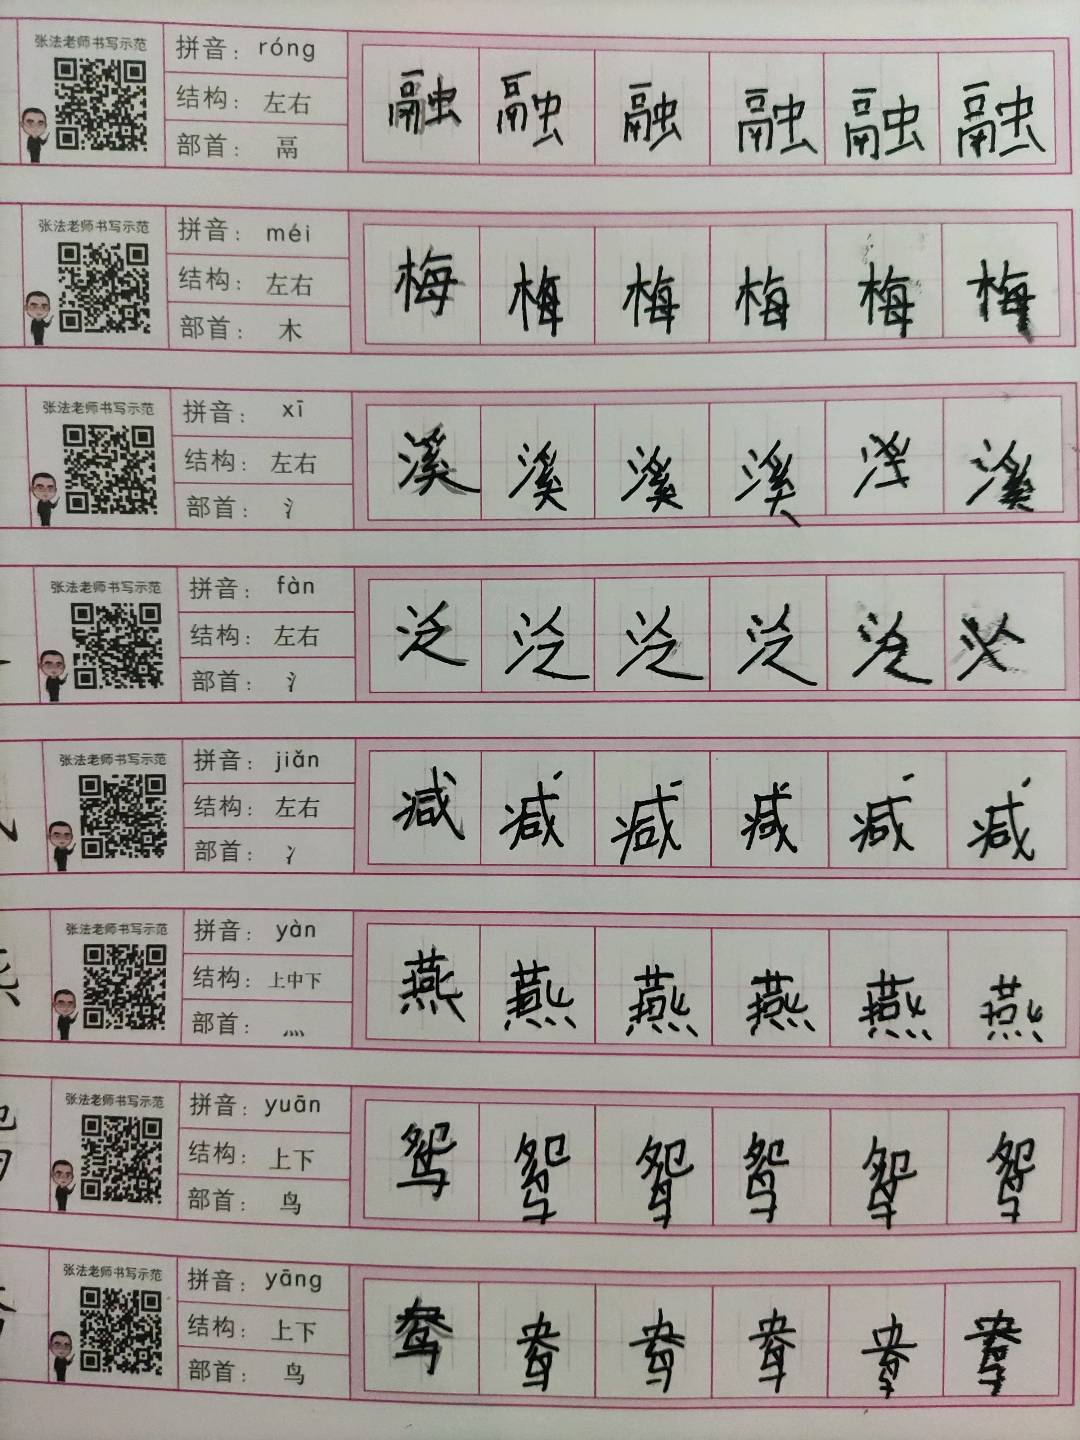 张法老师书写示范
拼音： róng
结构： 左右
部首： 鬲
融 融 融 融 融 融
张法老师书写示范
拼音： méi
结构： 左右
部首： 木
梅 梅 梅 梅 梅 梅
张法老师书写示范
拼音： xī
结构： 左右
部首： 氵
溪 溪 溪 溪
张法老师书写示范
拼音： fàn
结构： 左右
部首： 氵
泛 泛 泛 泛 泛
张法老师书写示范
拼音： jiǎn
结构： 左右
部首： 冫
减 减 减 减 减 减
张法老师书写示范
拼音： yàn
结构： 上中下
部首： 灬
燕 燕 燕 燕 燕 燕
张法老师书写示范
拼音： yuān
结构： 上下
部首： 鸟
鸳 鸳 鸳 鸳 鸳 鸳
张法老师书写示范
拼音： yāng
结构： 上下
部首： 鸟
鸯 鸯 鸯 鸯 鸯 鸯